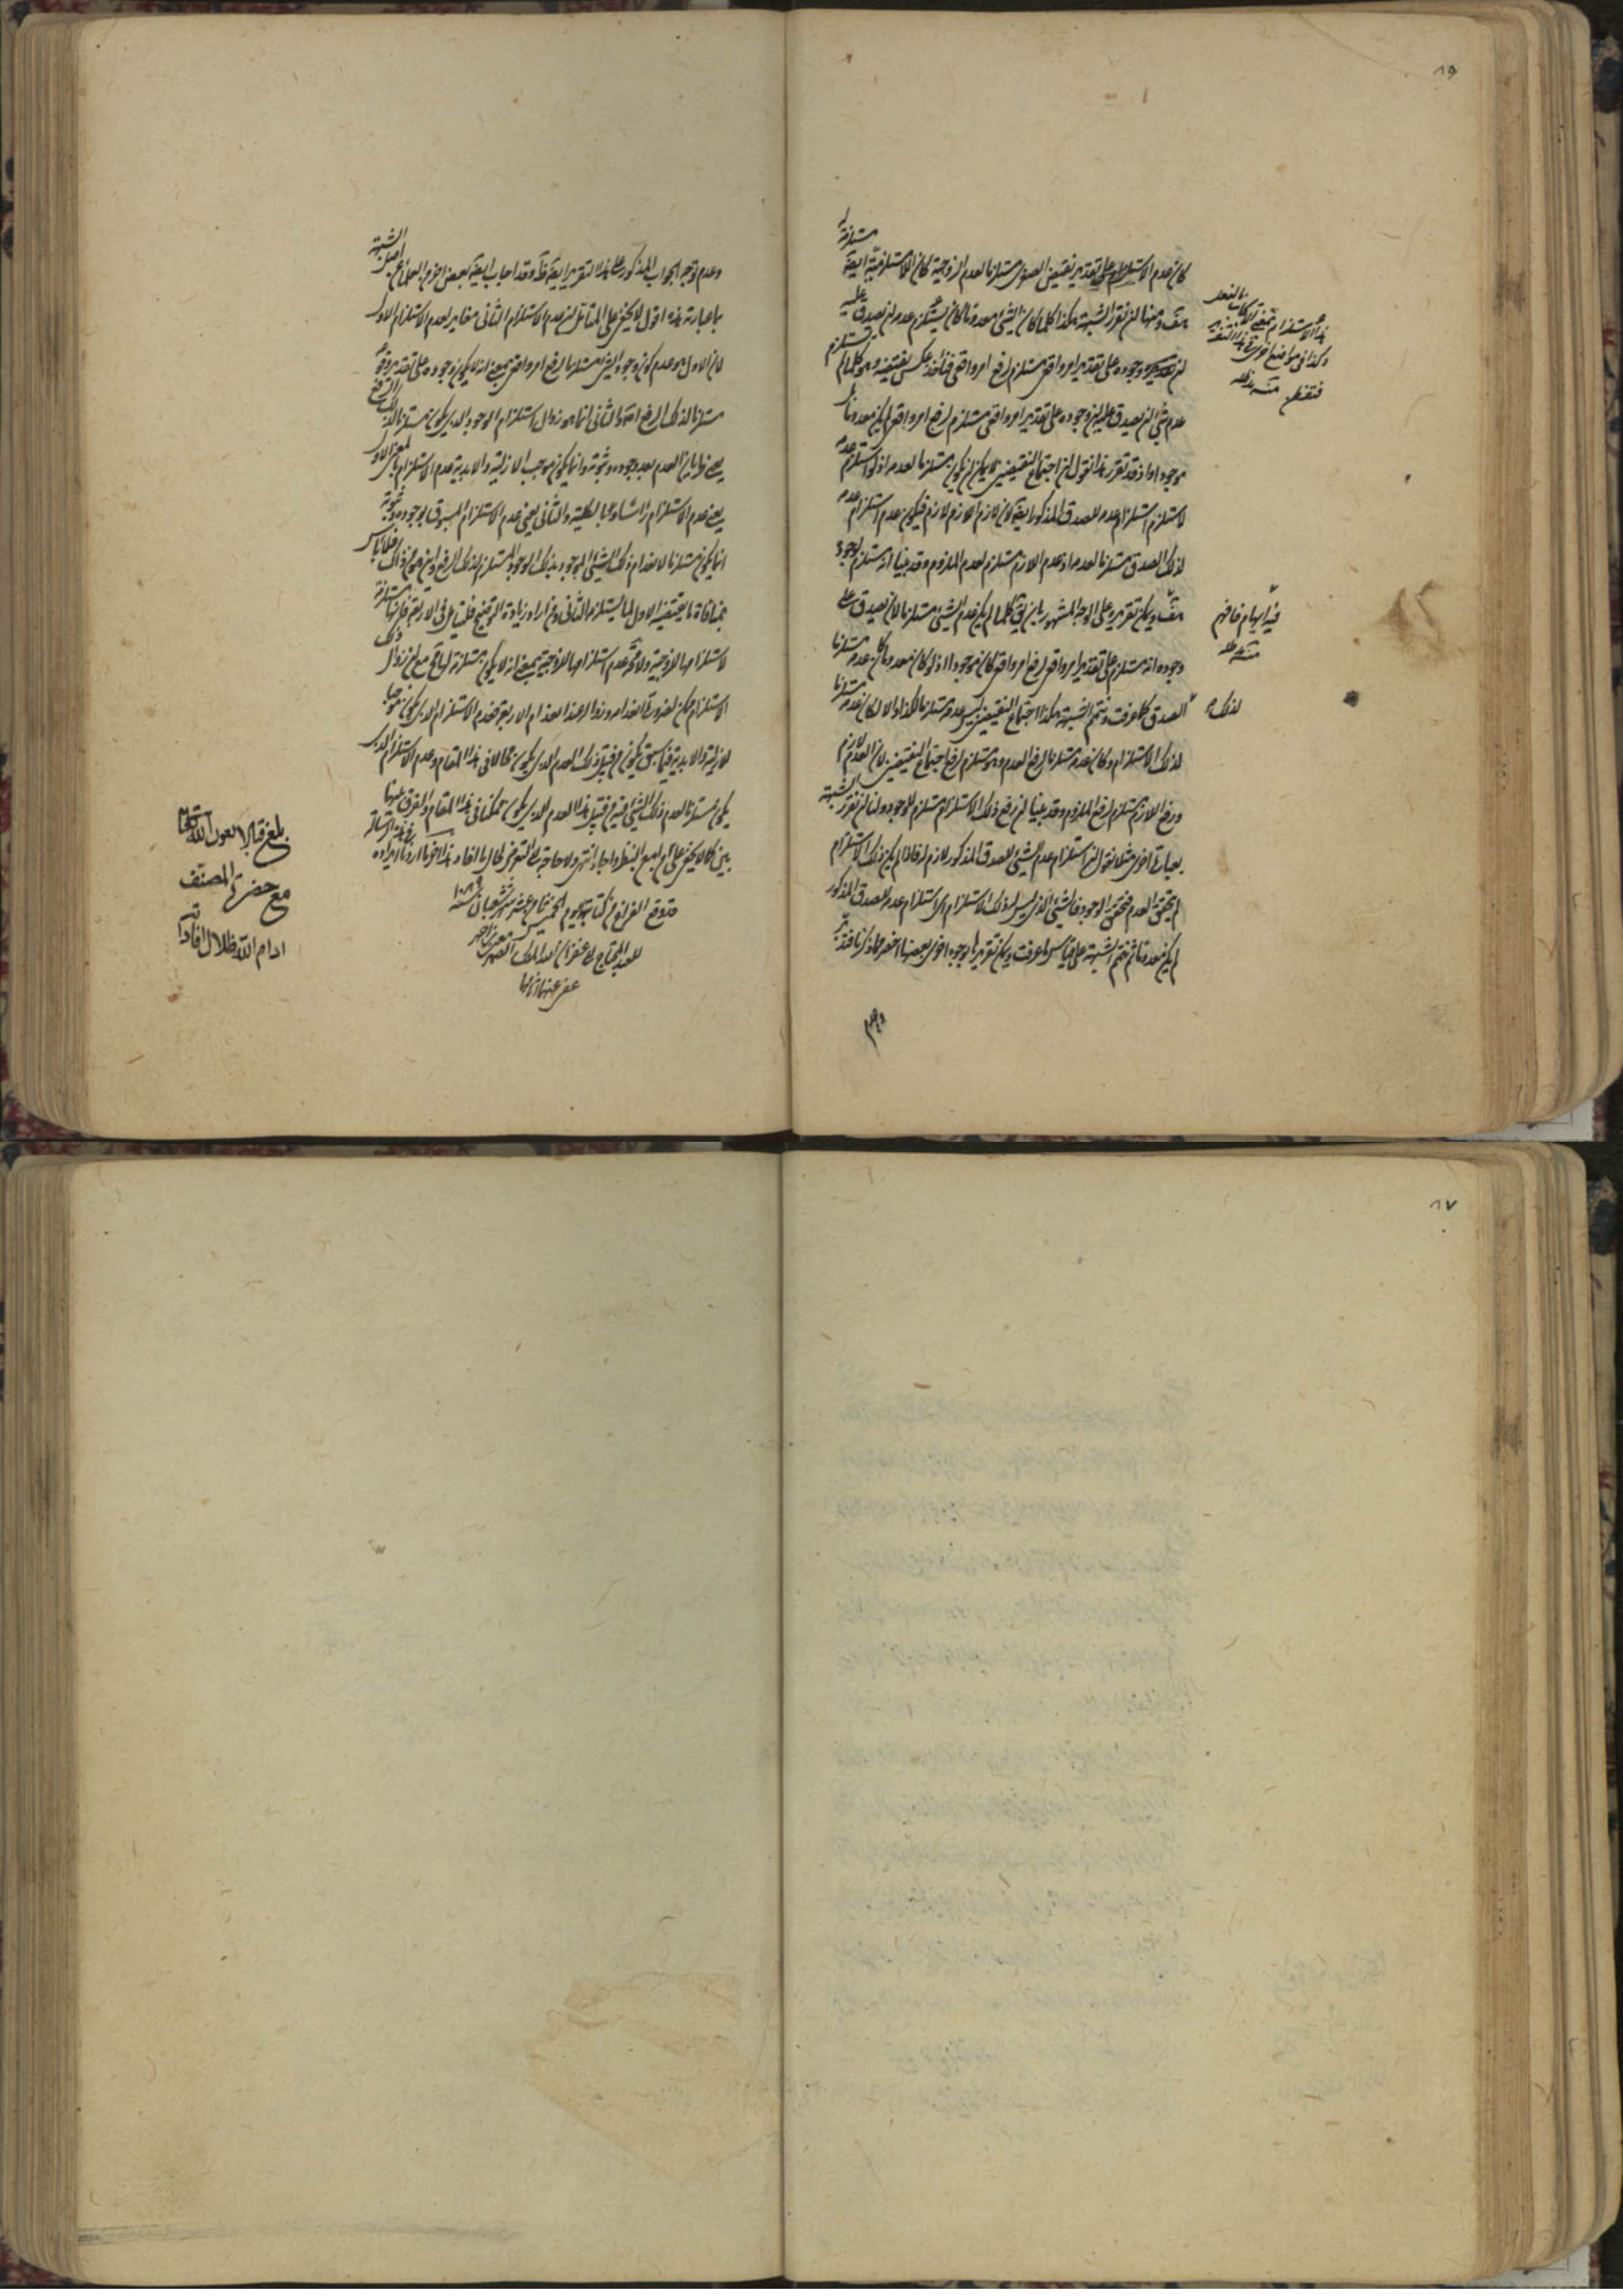 ٨٩
كان عدم الاستلزام على تقدير نقيض الصدق مستلزما لعدم الزوجية كان الاستلزامية ايضا مستلزمة
هف ومنها ان نقرر الشبهة هكذا كلما كان الشئ معدوما كان يستلزم عدمه ان يصدق عليه
ان وجوده على تقدير امر واقعى مستلزم لرفع امر واقعى فنأخذ عكس نقيضه وهو كلما لم يستلزم
عدم شئ ان يصدق عليه ان وجوده على تقدير امر واقعى مستلزم لرفع امر واقعى لم يكن معدوما
موجودا واذ قد تقرر هذا نقول ان اجتماع النقيضين لا يمكن ان يكون مستلزما لعدمه اذ لو استلزم عدمه
لاستلزم استلزام عدمه للصدق المذكور ايضا لان لازم اللازم لازم فيكون عدم استلزام عدمه
لذلك الصدق مستلزما لعدمه اذ عدم اللازم مستلزم لعدم الملزوم وقد بينا انه مستلزم لوجوده
هف ويمكن تقريره على الوجه المشهور بان يق كلما لم يكن عدم الشئ مستلزما لان يصدق على
وجوده انه مستلزم على تقدير امر واقعى لرفع امر واقعى كان موجودا اذ لو كان معدوما كان عدمه مستلزما
لذلك الصدق كما عرفت ونتمم الشبهة هكذا اجتماع النقيضين ليس عدمه مستلزما لكذا والا لكان عدمه مستلزما
لذلك الاستلزام وكان عدمه مستلزما لرفع العدم وهو مستلزم لرفع اجتماع النقيضين لان العدم لازم
ورفع اللازم مستلزم لرفع الملزوم وقد بينا ان رفع ذلك الاستلزام مستلزم للوجود ولنا ان نقرر الشبهة
بعبارة اخرى مثلا نقول ان استلزام عدم الشئ للصدق المذكور لازم له فاذا لم يكن ذلك الاستلزام
لم يتحقق العدم فتحقق الوجود فالشئ الذى ليس له ذلك الاستلزام اى استلزام عدمه للصدق المذكور
لم يكن معدوما ثم نتمم الشبهة على قياس ما عرفت ويمكن تقريرها بوجوه اخرى بعضها اخصر مما ذكرنا فتدبر
وعدم
هذا الاستلزام بمقتضى الكتاب بالفعل
وكذا فى مواضع اخرى فى هذا التقرير
فتفطن منه مد ظله
فيه ايهام فافهم
منه مد ظله
وعدم توجه الجواب المذكور على هذا التقرير ايضا ظ وقد اجاب ايضا بعض اخر من العلماء عن اصل الشبهة
بما عبارته هذه اقول لا يخفى على المتأمل ان عدم الاستلزام الثانى مغاير لعدم الاستلزام الاول
لان الاول هو عدم كون وجود الشئ مستلزما لرفع امر واقعى بمعنى انه لا يكون وجوده على تقدير وقوعه
مستلزما لذلك الرفع اصلا والثانى انما هو زوال استلزام الوجود الذى يكون مستلزما لذلك الرفع
يعنى طريان العدم بعد وجوده وثبوته وانما يكون موجب الازلية والابدية عدم الاستلزام بالمعنى الاول
يعنى عدم الاستلزام راسا وبالكلية والثانى يعنى عدم الاستلزام المسبوق بوجوده وثبوته
انما يكون مستلزما لانعدام ذلك الشئ الموجود بذلك الوجود المستلزم لذلك الرفع
بمنافاة ما يقتضيه الاول لما يستلزمه الثانى ومن اراد زيادة التوضيح فليتأمل فى الاربعة فانها مستلزمة
لاستلزامها للزوجية ولا ثمة عدم استلزامها للزوجية بمعنى انه لا يكون مستلزمة لها مع ان زوال ذلك
الاستلزام ممكن لضرورة انعدامه وزواله عند انعدام الاربعة فعدم الاستلزام الذى يكون موجبا
للازلية والابدية فيما سبق يكون من قبيل ذلك العدم الذى يكون محالا فى هذا المقام وعدم الاستلزام الذى
يكون مستلزما لعدم ذلك الشئ من قبيل هذا العدم الذى يكون ممكنا فى هذا المقام والفرق بينهما
بين كما لا يخفى على من امعن النظر واجاد انتهى ولا حاجة الى التعرض لحال ما افاده هذا اخر ما اردنا ايراده فى هذه الرسالة
قد وقع الفراغ من كتابته يوم الخميس ثامن عشر شهر شعبان سنة ١٠٨٩
للعبد المحتاج الى غفران الله الملك
عفى عنهما
بلغ قبالا بعون الله تعالى
مع حضرة المصنف
ادام الله ظلال افاداته
٨٧